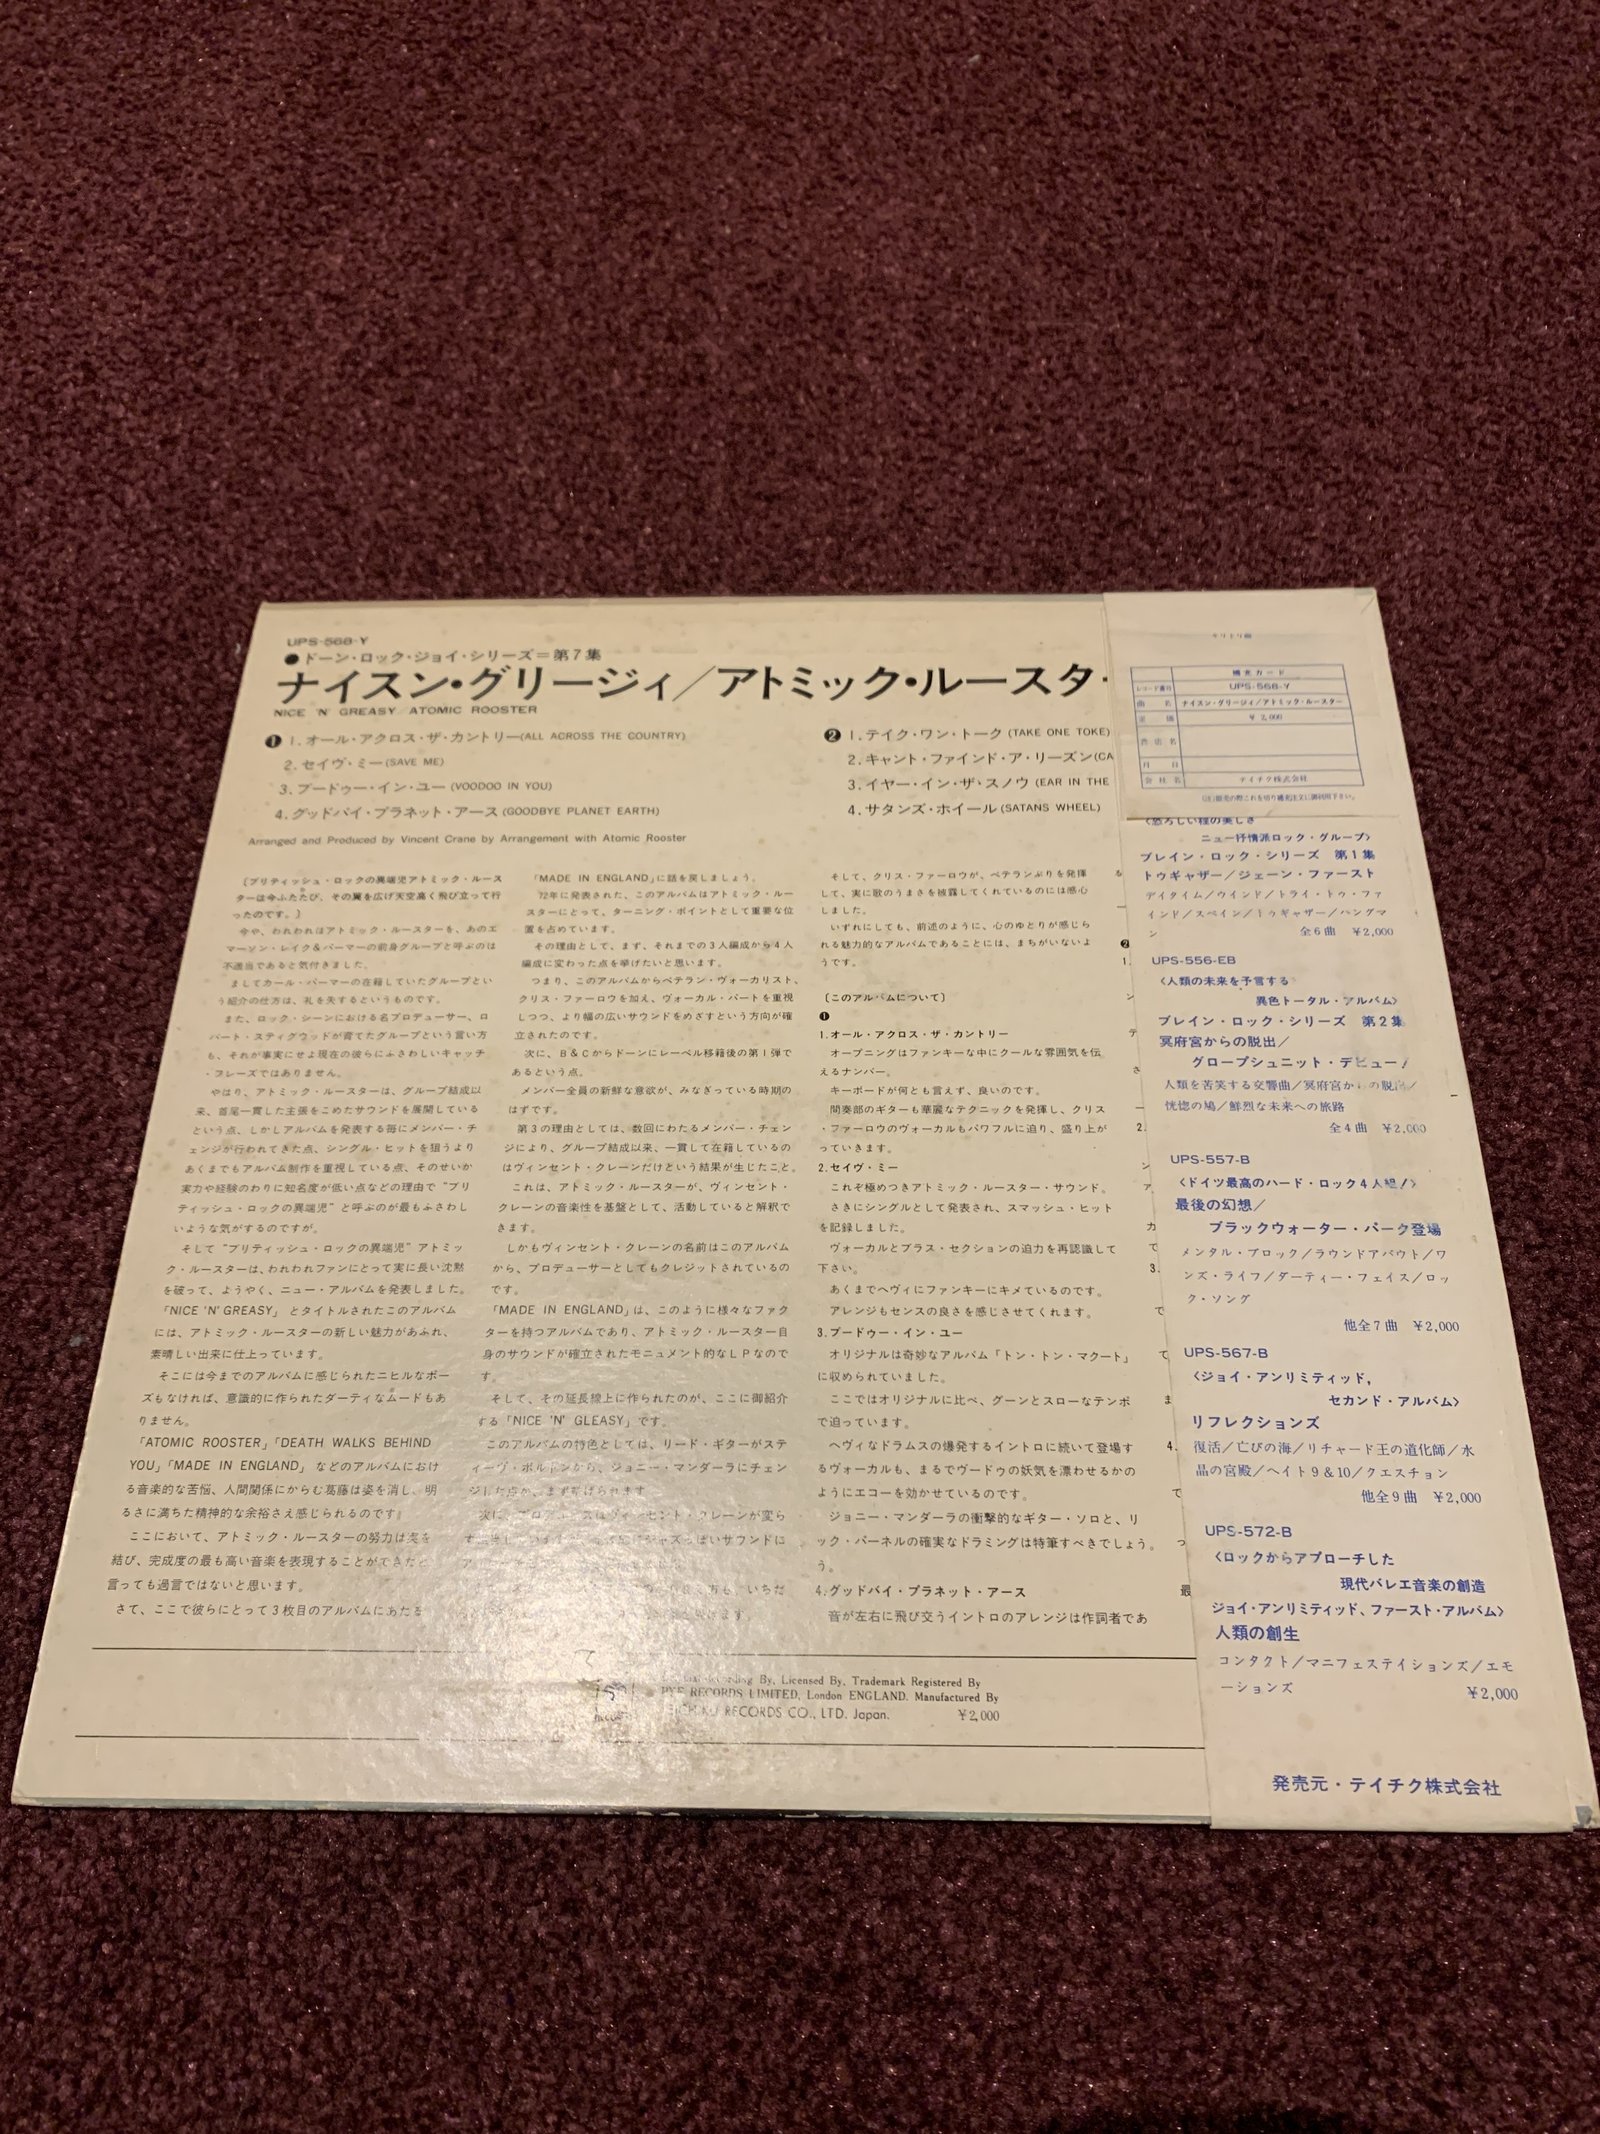 UPS-568-Y
●ドーン・ロック・ジョイ・シリーズ＝第7集
ナイスン・グリージィ／アトミック・ルースター
NICE 'N' GREASY/ATOMIC ROOSTER
❶ 1.オール・アクロス・ザ・カントリー(ALL ACROSS THE COUNTRY)
2.セイヴ・ミー(SAVE ME)
3.ブードゥー・イン・ユー(VOODOO IN YOU)
4.グッドバイ・プラネット・アース(GOODBYE PLANET EARTH)
❷ 1.テイク・ワン・トーク(TAKE ONE TOKE)
2.キャント・ファインド・ア・リーズン(CA
3.イヤー・イン・ザ・スノウ(EAR IN THE
4.サタンズ・ホイール(SATANS WHEEL)
Arranged and Produced by Vincent Crane by Arrangement with Atomic Rooster
〔ブリティッシュ・ロックの異端児アトミック・ルース
ターは今ふたたび、その翼を広げ天空高く飛び立って行
ったのです。〕
今や、われわれはアトミック・ルースターを、あのエ
マーソン・レイク&パーマーの前身グループと呼ぶのは
不適当であると気付きました。
ましてカール・パーマーの在籍していたグループとい
う紹介の仕方は、礼を失するというものです。
また、ロック・シーンにおける名プロデューサー、ロ
バート・スティグウッドが育てたグループという言い方
も、それが事実にせよ現在の彼らにふさわしいキャッチ
・フレーズではありません。
やはり、アトミック・ルースターは、グループ結成以
来、首尾一貫した主張をこめたサウンドを展開している
という点、しかしアルバムを発表する毎にメンバー・チ
ェンジが行われてきた点、シングル・ヒットを狙うより
あくまでもアルバム制作を重視している点、そのせいか
実力や経験のわりに知名度が低い点などの理由で“ブリ
ティッシュ・ロックの異端児”と呼ぶのが最もふさわし
いような気がするのですが。
そして“ブリティッシュ・ロックの異端児”アトミッ
ク・ルースターは、われわれファンにとって実に長い沈黙
を破って、ようやく、ニュー・アルバムを発表しました。
「NICE 'N' GREASY」とタイトルされたこのアルバム
には、アトミック・ルースターの新しい魅力があふれ、
素晴しい出来に仕上っています。
そこには今までのアルバムに感じられたニヒルなポー
ズもなければ、意識的に作られたダーティなムードもあ
りません。
「ATOMIC ROOSTER」「DEATH WALKS BEHIND
YOU」「MADE IN ENGLAND」などのアルバムにおけ
る音楽的な苦悩、人間関係にからむ葛藤は姿を消し、明
るさに満ちた精神的な余裕さえ感じられるのです。
ここにおいて、アトミック・ルースターの努力は実を
結び、完成度の最も高い音楽を表現することができたと
言っても過言ではないと思います。
さて、ここで彼らにとって3枚目のアルバムにあたる
「MADE IN ENGLAND」に話を戻しましょう。
72年に発表された、このアルバムはアトミック・ルー
スターにとって、ターニング・ポイントとして重要な位
置を占めています。
その理由として、まず、それまでの3人編成から4人
編成に変わった点を挙げたいと思います。
つまり、このアルバムからベテラン・ヴォーカリスト、
クリス・ファーロウを加え、ヴォーカル・パートを重視
しつつ、より幅の広いサウンドをめざすという方向が確
立されたのです。
次に、B&Cからドーンにレーベル移籍後の第1弾で
あるという点。
メンバー全員の新鮮な意欲が、みなぎっている時期の
はずです。
第3の理由としては、数回にわたるメンバー・チェン
ジにより、グループ結成以来、一貫して在籍しているの
はヴィンセント・クレーンだけという結果が生じたこと。
これは、アトミック・ルースターが、ヴィンセント・
クレーンの音楽性を基盤として、活動していると解釈で
きます。
しかもヴィンセント・クレーンの名前はこのアルバム
から、プロデューサーとしてもクレジットされているの
です。
「MADE IN ENGLAND」は、このように様々なファク
ターを持つアルバムであり、アトミック・ルースター自
身のサウンドが確立されたモニュメント的なLPなので
す。
そして、その延長線上に作られたのが、ここに御紹介
する「NICE 'N' GLEASY」です。
このアルバムの特色としては、リード・ギターがステ
ィーヴ・ボルトンから、ジョニー・マンダーラにチェン
ジした点が、まず挙げられます。
そして、クリス・ファーロウが、ベテランぶりを発揮
して、実に歌のうまさを披露してくれているのには感心
しました。
いずれにしても、前述のように、心のゆとりが感じら
れる魅力的なアルバムであることには、まちがいないよ
うです。
〔このアルバムについて〕
❶
1.オール・アクロス・ザ・カントリー
オープニングはファンキーな中にクールな雰囲気を伝
えるナンバー。
キーボードが何とも言えず、良いのです。
間奏部のギターも華麗なテクニックを発揮し、クリス
・ファーロウのヴォーカルもパワフルに迫り、盛り上が
っていきます。
2.セイヴ・ミー
これぞ極めつきアトミック・ルースター・サウンド。
さきにシングルとして発表され、スマッシュ・ヒット
を記録しました。
ヴォーカルとブラス・セクションの迫力を再認識して
下さい。
あくまでヘヴィにファンキーにキメているのです。
アレンジもセンスの良さを感じさせてくれます。
3.ブードゥー・イン・ユー
オリジナルは奇妙なアルバム「トン・トン・マクート」
に収められていました。
ここではオリジナルに比べ、グーンとスローなテンポ
で迫っています。
ヘヴィなドラムスの爆発するイントロに続いて登場す
るヴォーカルも、まるでヴードゥの妖気を漂わせるかの
ようにエコーを効かせているのです。
ジョニー・マンダーラの衝撃的なギター・ソロと、リ
ック・パーネルの確実なドラミングは特筆すべきでしょう。
う。
4.グッドバイ・プラネット・アース
音が左右に飛び交うイントロのアレンジは作詞者であ
Recording By, Licensed By, Trademark Registered By
PYE RECORDS LIMITED, London ENGLAND. Manufactured By
RECORDS CO., LTD. Japan. ¥2,000
キリトリ線
補充カード
レコード番号 UPS-568-Y
曲名 ナイスン・グリージィ/アトミック・ルースター
定価 ¥2,000
書店名
月日
会社名 テイチク株式会社
〈恐ろしい程の美しさ
ニュー抒情派ロック・グループ〉
ブレイン・ロック・シリーズ 第1集
トゥギャザー／ジェーン・ファースト
デイタイム／ウインド／トライ・トゥ・ファ
インド／スペイン／トゥギャザー／ハングマ
ン
全6曲 ¥2,000
UPS-556-EB
〈人類の未来を予言する
異色トータル・アルバム〉
ブレイン・ロック・シリーズ 第2集
冥府宮からの脱出／
グローブシュニット・デビュー！
人類を苦笑する交響曲／冥府宮からの脱出／
恍惚の鳩／鮮烈な未来への旅路
全4曲 ¥2,000
UPS-557-B
〈ドイツ最高のハード・ロック4人組！〉
最後の幻想／
ブラックウォーター・パーク登場
メンタル・ブロック／ラウンドアバウト／ワ
ンズ・ライフ／ダーティー・フェイス／ロッ
ク・ソング
他全7曲 ¥2,000
UPS-567-B
〈ジョイ・アンリミティッド,
セカンド・アルバム〉
リフレクションズ
復活／亡びの海／リチャード王の道化師／水
晶の宮殿／ヘイト9&10／クエスチョン
他全9曲 ¥2,000
UPS-572-B
〈ロックからアプローチした
現代バレエ音楽の創造
ジョイ・アンリミティッド、ファースト・アルバム〉
人類の創生
コンタクト／マニフェステイションズ／エモ
ーションズ
¥2,000
発売元・テイチク株式会社